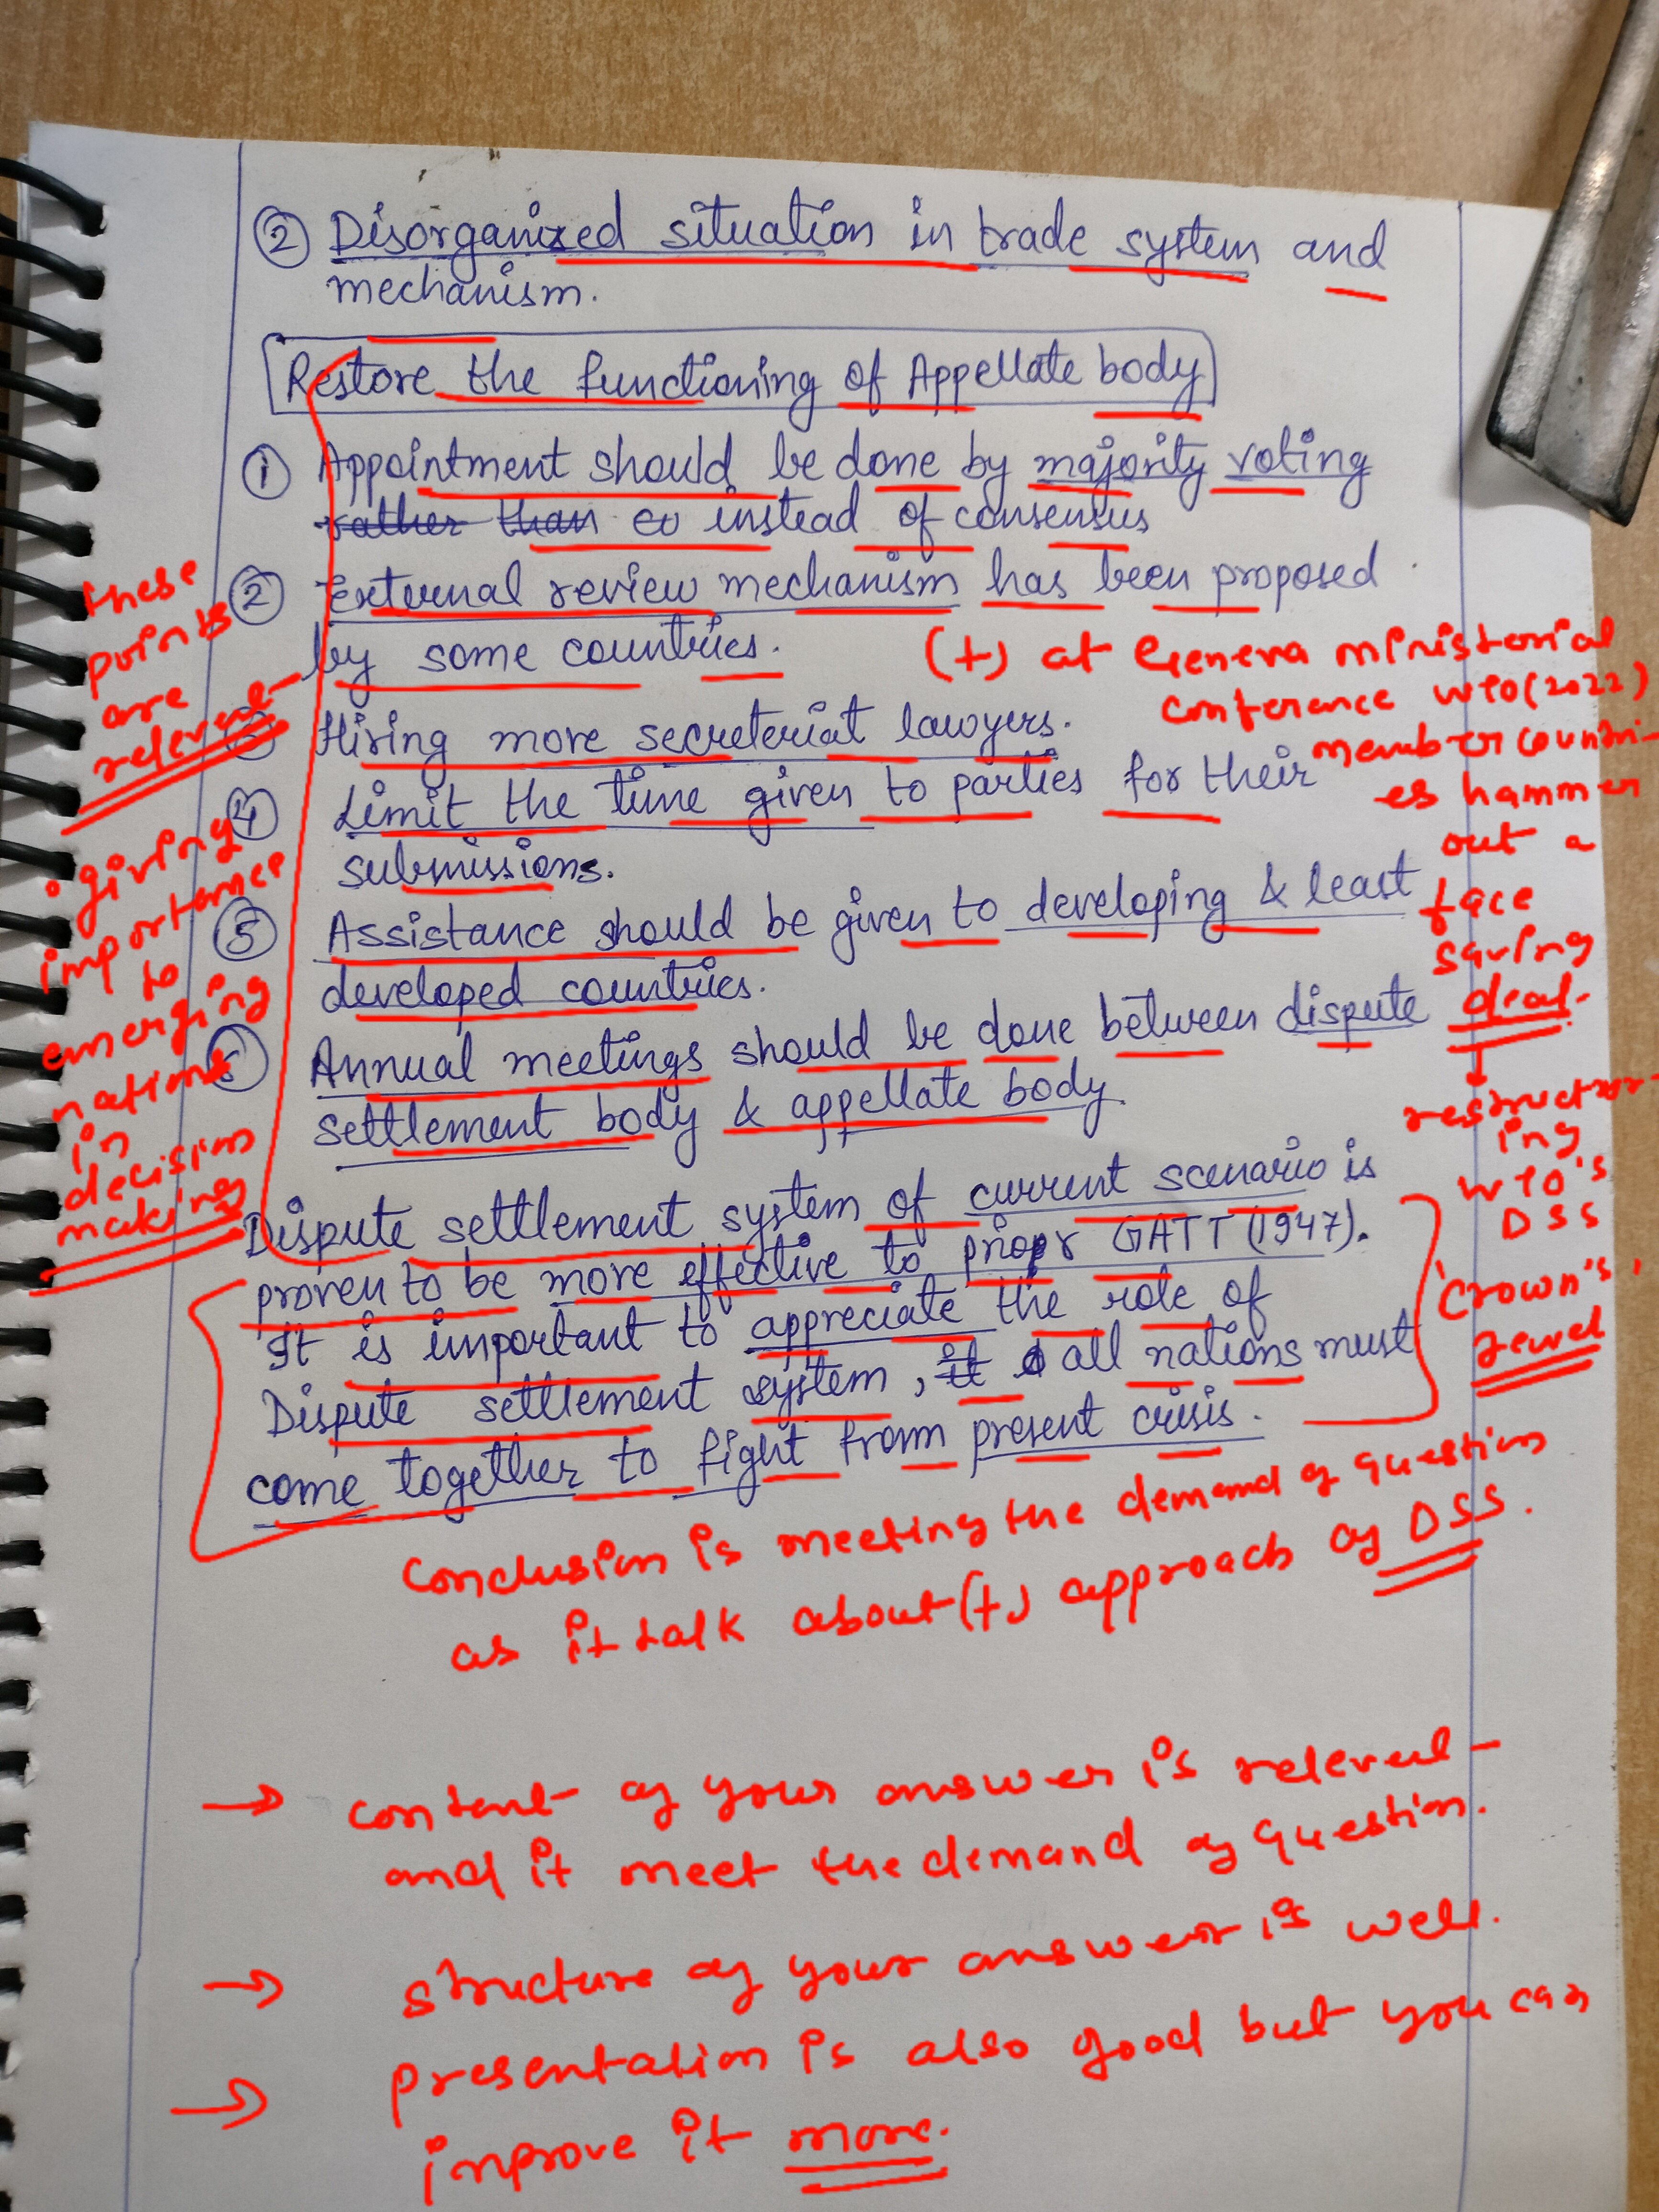 ② Disorganized situation in trade system and
mechanism.
Restore the functioning of Appellate body
① Appointment should be done by majority voting
rather than co instead of consensus
② External review mechanism has been proposed
by some countries.
③ Hiring more secreteriat lawyers.
④ Limit the time given to parties for their
submissions.
⑤ Assistance should be given to developing & least
developed countries.
⑥ Annual meetings should be done between dispute
settlement body & appellate body.
Dispute settlement system of current scenario is
proven to be more effective to prior GATT (1947).
It is important to appreciate the role of
Dispute settlement system, it all nations must
come together to fight from present crisis.
these
points
are
relevent
giving
importance
to
emerging
nations
in
decision
making
(+) at Geneva ministerial
conference WTO (2022)
member countri-
es hammer
out a
face
saving
deal.
↓
restructur-
ing
WTO's
DSS
'Crown's'
Jewel
Conclusion is meeting the demand of question
as it talk about (+) approach of DSS.
→ content of your answer is relevent
and it meet the demand of question.
→ structure of your answer is well.
→ presentation is also good but you can
improve it more.